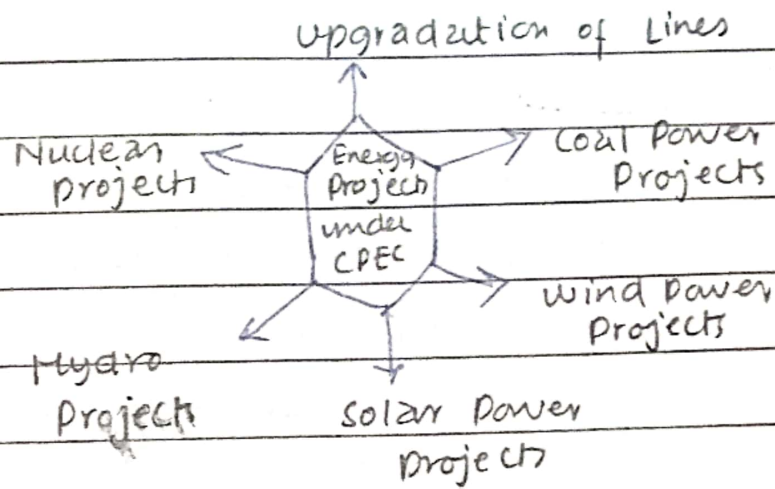 Upgradation of Lines
Nuclear
Projects
Energy
Projects
under
CPEC
Coal Power
Projects
Wind Power
Projects
Hydro
Projects
Solar Power
Projects